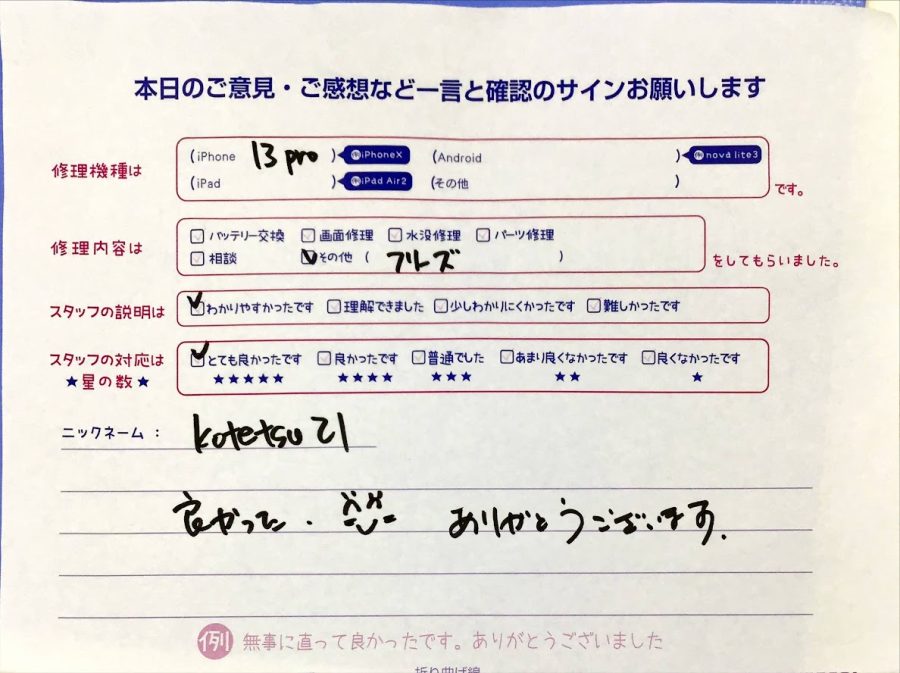 本日のご意見・ご感想など一言と確認のサインお願いします
修理機種は
(iPhone 13 pro ) 例iPhoneX (Android ) 例nova lite3
(iPad ) 例iPad Air2 (その他 ) です。
修理内容は
バッテリー交換 画面修理 水没修理 パーツ修理
相談 その他 ( フリーズ ) をしてもらいました。
スタッフの説明は わかりやすかったです 理解できました 少しわかりにくかったです 難しかったです
スタッフの対応は とても良かったです 良かったです 普通でした あまり良くなかったです 良くなかったです
★星の数★ ★★★★★ ★★★★ ★★★ ★★ ★
ニックネーム： kotetsu21
良かった. ありがとうございます.
例 無事に直って良かったです。ありがとうございました
折り曲げ線